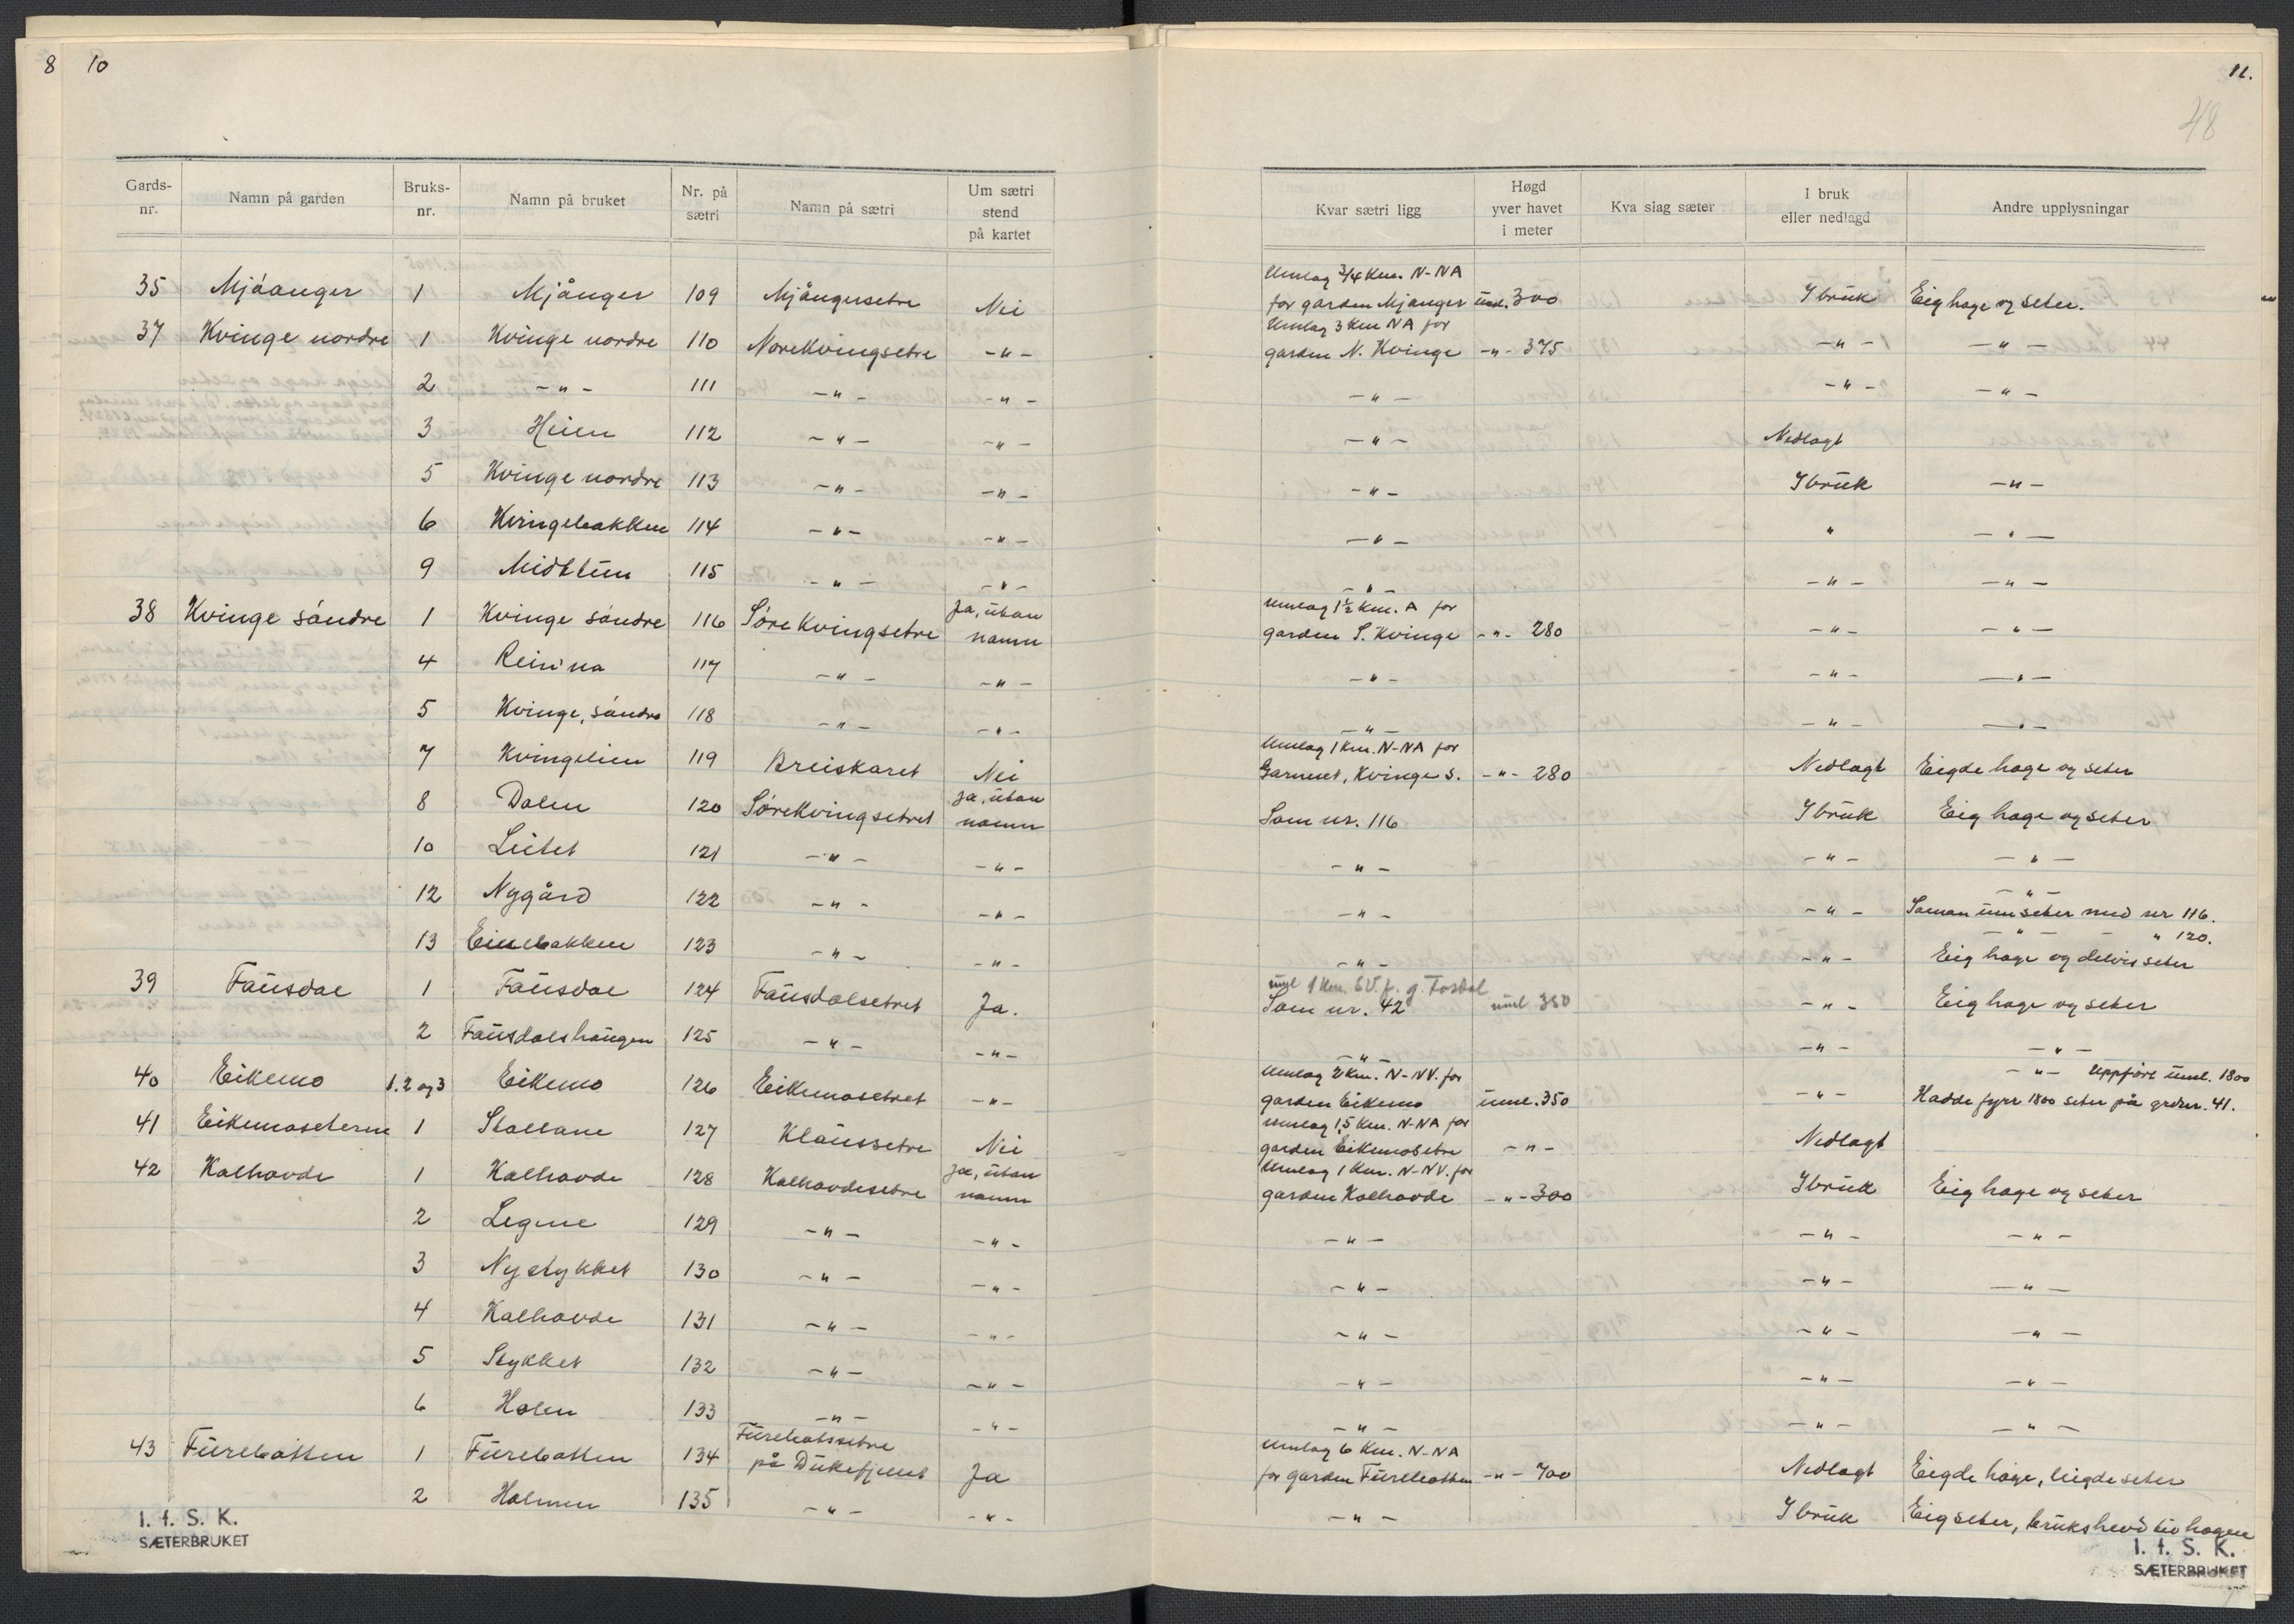 8 10
11.
48
Gards-nr. Namn på garden Bruks-nr. Namn på bruket Nr. på sætri Namn på sætri Um sætri stend på kartet Kvar sætri ligg Høgd yver havet i meter Kva slag sæter I bruk eller nedlagd Andre upplysningar
35 Mjåanger 1 Mjånger 109 Mjångersetre Nei Umlag 3/4 Km. N-NA for garden Mjanger uml. 300 I bruk Eig hage og seter.
37 Kvinge nordre 1 Kvinge nordre 110 NoreKvingsetre -"- Umlag 3 Km NA for garden N. Kvinge -"- 375 -"- -"-
2 -"- 111 -"- -"- -"- -"- -"-
3 Heien 112 -"- -"- -"- Nedlagt
5 Kvinge nordre 113 -"- -"- -"- I bruk -"-
6 Kvingebakken 114 -"- -"- -"- " -"-
9 Midttun 115 -"- -"- -"- -"- -"-
38 Kvinge söndre 1 Kvinge söndre 116 Søre Kvingsetre Ja, utan namn Umlag 1½ Km. A for garden S. Kvinge -"- 280 -"- -"-
4 Reinina 117 -"- -"- -"- -"- -"-
5 Kvinge, söndre 118 -"- -"- -"- -"- -"-
7 Kvingelien 119 Breiskaret Nei Umlag 1 Km. N-NA for Garnnet, Kvinge s. -"- 280 Nedlagt Eigde hage og seter
8 Dalen 120 SøreKvingsetret Ja, utan namn Som nr. 116 I bruk Eig hage og seter
10 Leitet 121 -"- -"- -"- -"- -"-
12 Nygård 122 -"- -"- -"- -"- -"- Saman um seter med nr 116.
13 Einebakken 123 -"- -"- -"- -"- -"- " 120. Eig hage og delvis seter
39 Fausdal 1 Fausdal 124 Fausdalsetret Ja. uml 1 Km. SV. f. g. Fosdal Som nr. 42 uml 350 -"- Eig hage og seter
2 Fausdalshaugen 125 -"- -"- -"- -"- -"-
40 Eikemo 1.2 og 3 Eikemo 126 Eikemosetret -"- Umlag 2 Km. N-NV. for garden Eikemo uml. 350 -"- -"- Uppført uml. 1800 Hadde fyrr 1800 seter på grdnr. 41.
41 Eikemoseterne 1 Stallane 127 Klaussetre Nei Umlag 1,5 Km. N-NA for garden Eikemosetre -"- Nedlagt
42 Kalhovde 1 Kalhovde 128 Kalhovdesetre Ja, utan namn Umlag 1 Km. N-NV. for garden Kalhovde -"- 300 I bruk Eig hage og seter
2 Legene 129 -"- -"- -"- -"- -"-
3 Nystykket 130 -"- -"- -"- -"- -"-
4 Kalhovde 131 -"- -"- -"- -"- -"-
5 Stykket 132 -"- -"- -"- -"- -"-
6 Holen 133 -"- -"- -"- -"- -"-
43 Furebotten 1 Furebotten 134 Furebotssetre på Dukefjellet Ja Umlag 6 Km. N-NA for garden Furebotten -"- 700 Nedlagt Eigde hage, leigde seter
2 Holmen 135 -"- -"- -"- I bruk Eig seter, brukshevd til hagen
I. f. S. K.
SÆTERBRUKET
I. f. S. K.
SÆTERBRUKET